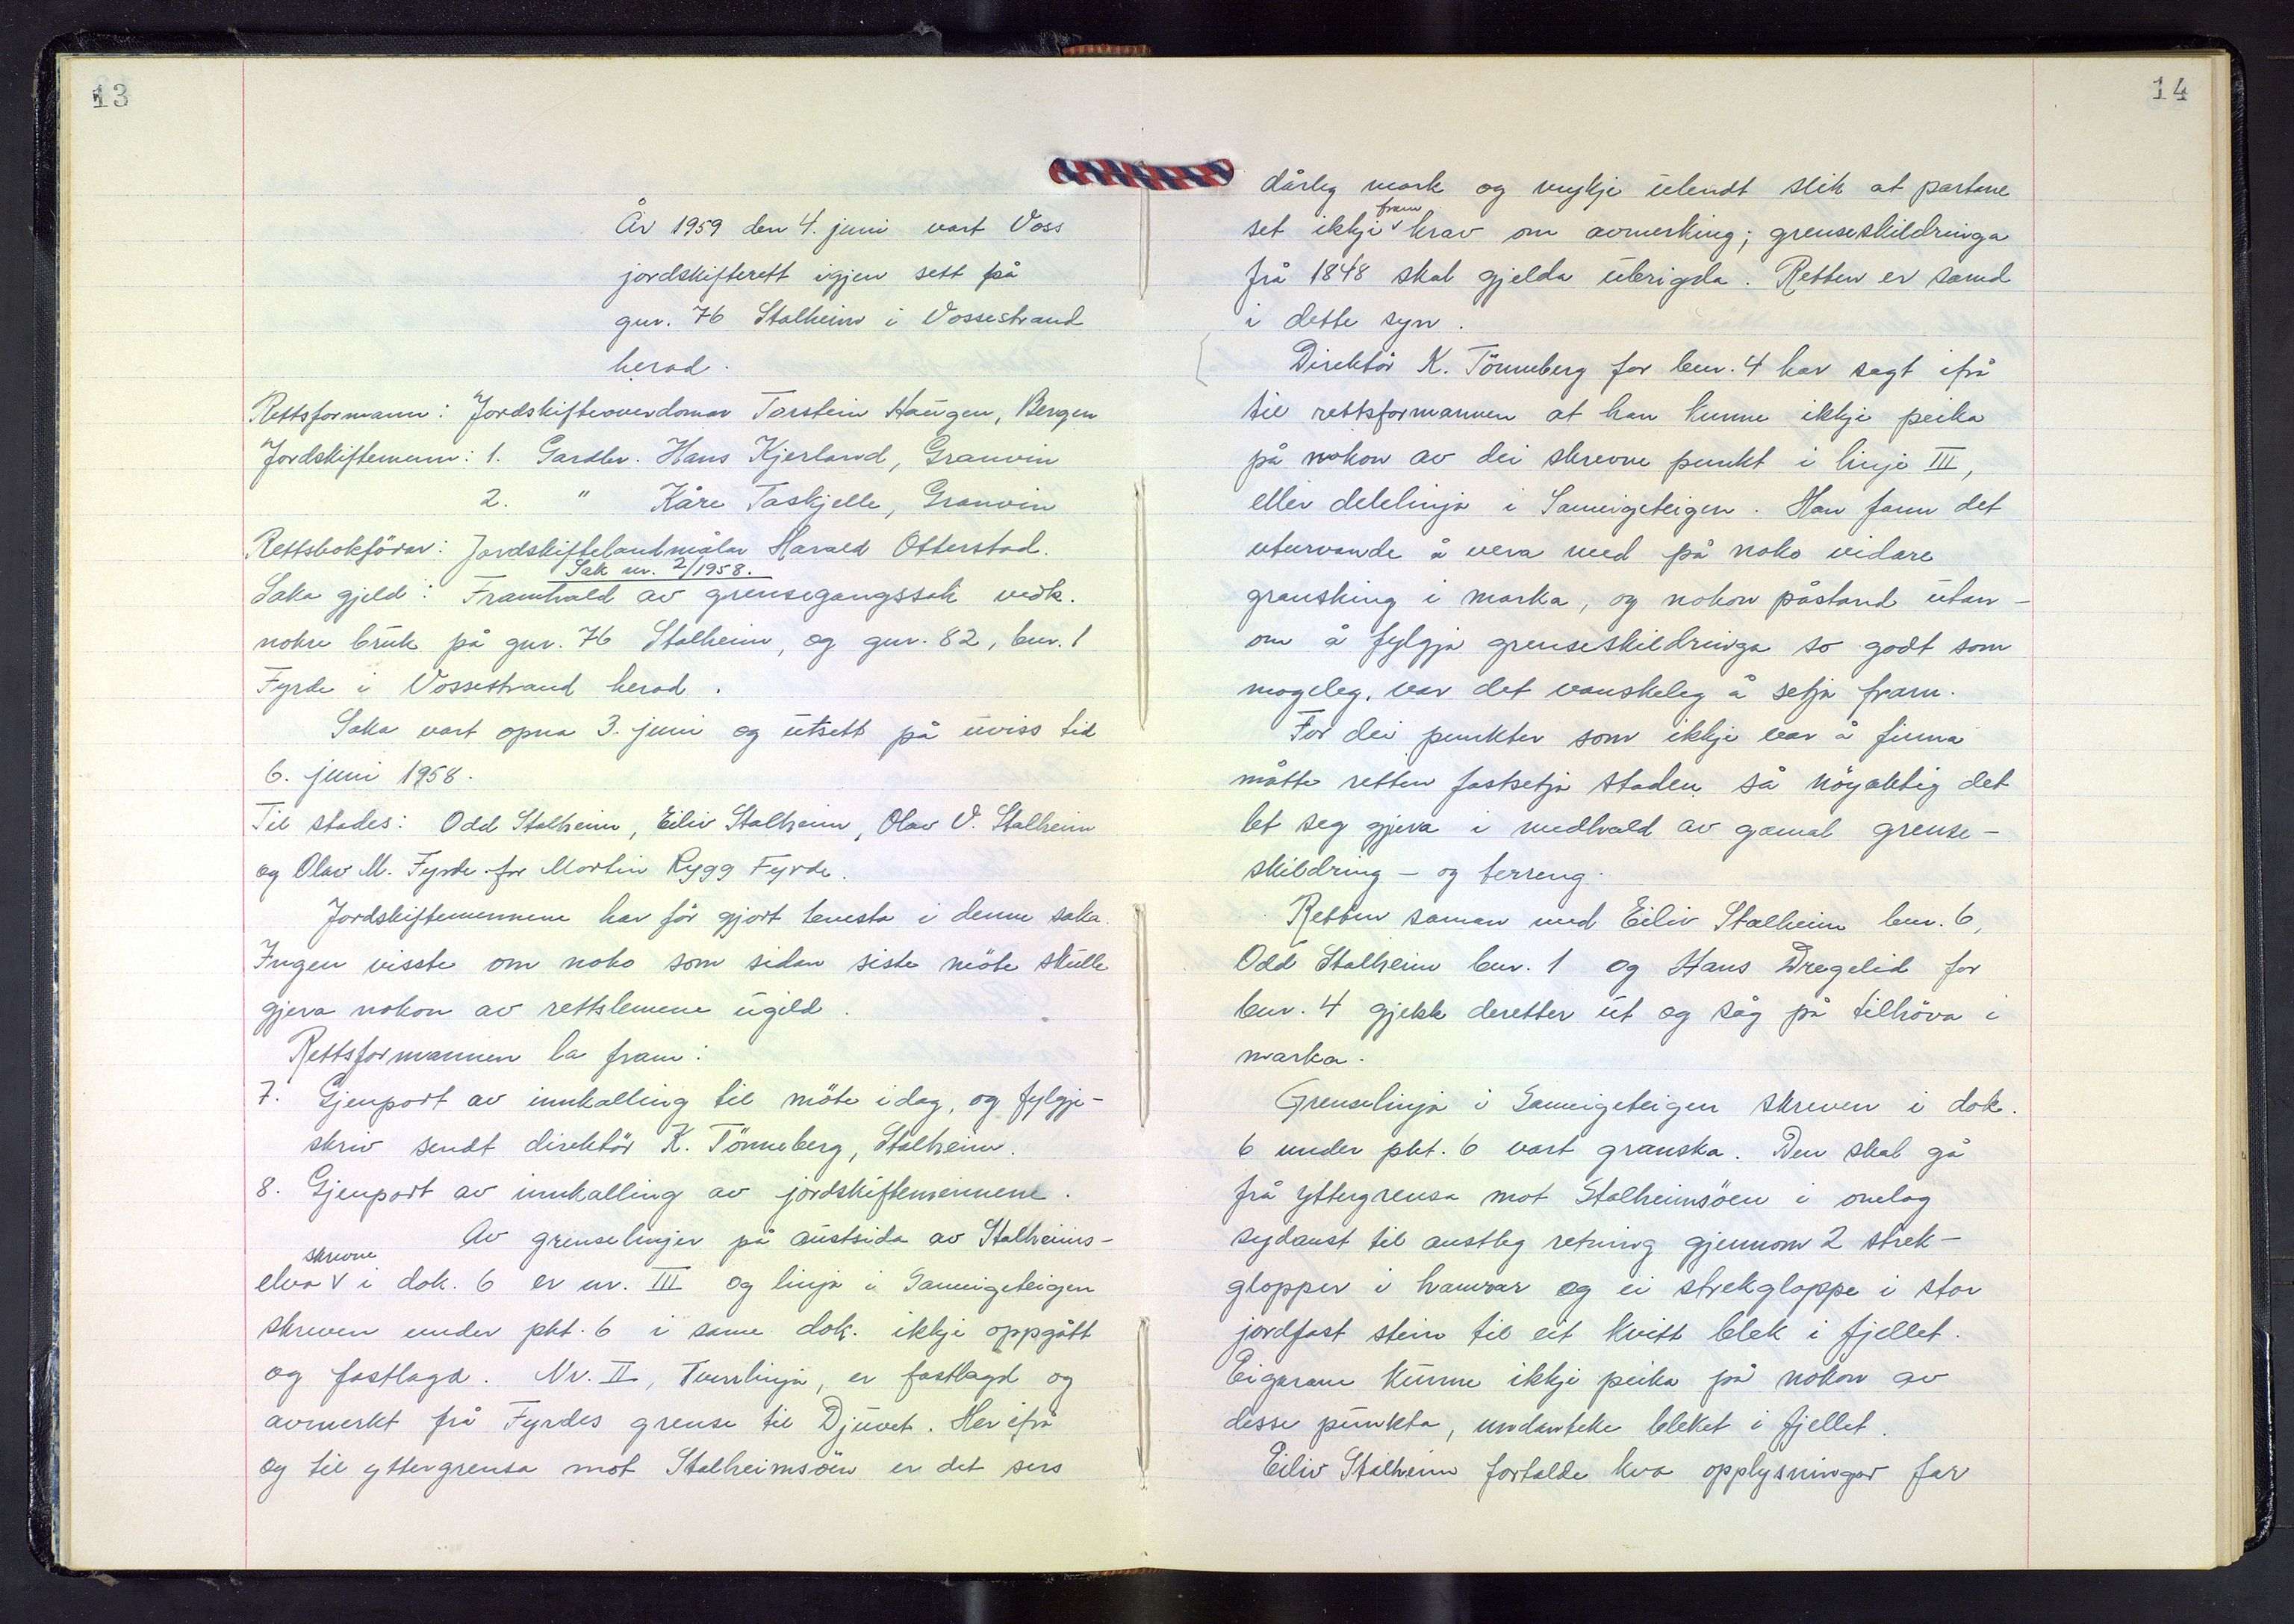 13
År 1959 den 4. juni vart Voss
jordskifterett igjen sett på
gnr. 76 Stalheim i Vossestrand
herad.
Rettsformann: Jordskifteoverdomar Torstein Haugen, Bergen
Jordskiftemenn: 1. Gardbr. Hans Kjerland, Granvin
2. " Kåre Taskjelle, Granvin
Rettsbokførar: Jordskiftelandmålar Harald Otterstad.
Sak nr. 2/1958.
Saka gjeld: Framhald av grensegangssak vedk.
nokre bruk på gnr. 76 Stalheim, og gnr. 82, bnr. 1
Fyrde i Vossestrand herad.
Saka vart opna 3. juni og utsett på uviss tid
6. juni 1958.
Til stades: Odd Stalheim, Eiliv Stalheim, Olav V. Stalheim
og Olav M. Fyrde for Martin Rygg Fyrde.
Jordskiftemennene har för gjort tenesta i denne saka.
Ingen visste om noko som sidan siste möte skulle
gjera nokon av rettslemene ugild.
Rettsformannen la fram:
7. Gjenpart av innkalling til möte idag, og fylgje-
skriv sendt direktör K. Tönneberg, Stalheim.
8. Gjenpart av innkalling av jordskiftemennene.
Av grenselinjer på austsida av Stalheims-
skrevne
elva v i dok. 6 er nr. III og linja i Sameigeteigen
skreven under pkt. 6 i same dok. ikkje oppgått
og fastlagd. Nr. II, Tverrlinja, er fastlagd og
avmerkt frå Fyrdes grense til Djuvet. Her ifrå
og til yttergrensa mot Stalheimsöen er det sers
14
dårleg mark og mykje ulendt slik at partane
fram
set ikkje v krav om avmerking; grenseskildringa
frå 1848 skal gjelda ubrigda. Retten er samd
i dette syn.
Direktör K. Tönneberg for bnr. 4 har sagt ifrå
til rettsformannen at han kunne ikkje peika
på nokon av dei skrevne punkt i linje III,
eller delelinja i Sameigeteigen. Han fann det
uturvande å vera med på noko vidare
gransking i marka, og nokon påstand utan-
om å fylgja grenseskildringa so godt som
mogeleg, var det vanskeleg å setja fram.
For dei punkter som ikkje var å finna
måtte retten fastsetja staden så nöyaktig det
let seg gjera i medhald av gamal grense-
skildring - og terreng.
Retten saman med Eiliv Stalheim bnr. 6,
Odd Stalheim bnr. 1 og Hans Dregelid for
bnr. 4 gjekk deretter ut og såg på tilhöva i
marka.
Grenselinja i Sameigeteigen skreven i dok.
6 under pkt. 6 vart granska. Den skal gå
frå yttergrensa mot Stalheimsöen i omlag
sydaust til austleg retning gjennom 2 strek-
glopper i hamrar og ei strekgloppe i stor
jordfast stein til eit kvitt blek i fjellet.
Eigarane kunne ikkje peika på nokon av
desse punkta, undanteke bleket i fjellet.
Eiliv Stalheim fortalde kva opplysningar far